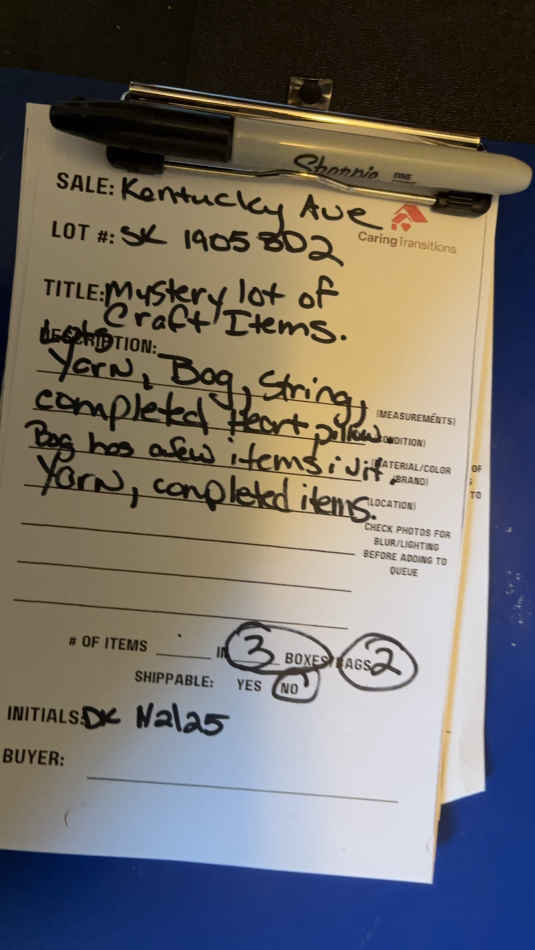 Sharpie FINE
SALE: Kentucky Ave
CaringTransitions
LOT #: SK 1905802
TITLE: Mystery lot of
Craft Items.
DESCRIPTION: Lots
Yarn, Bag, String,
(MEASUREMENTS)
completed Heart pillow.
(CONDITION)
Bag has a few items in it.
(MATERIAL/COLOR
/BRAND)
Yarn, completed items.
(LOCATION)
CHECK PHOTOS FOR
BLUR/LIGHTING
BEFORE ADDING TO
QUEUE
OF
TO
# OF ITEMS ______ IN 3 BOXES/BAGS 2
SHIPPABLE: YES NO
INITIALS: DK
BUYER: